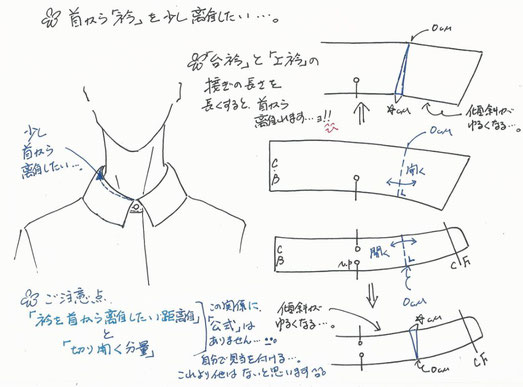 首から「衿」を少し離したい…。
「台衿」と「上衿」の
接ぎの長さを
長くすると、首から
離れます…ョ!!
0cm
傾斜が
ゆるくなる…。
少し
首から
離したい…。
0cm
開く
C
B
開く
C
B
N.P
0cm
C
F
傾斜が
ゆるくなる…。
0cm
C
F
ご注意点
「衿を首から離したい距離」
と
「切り開く分量」
この関係に
「公式」は
ありません…。
自分で見当を付ける…。
これより他はないと思います